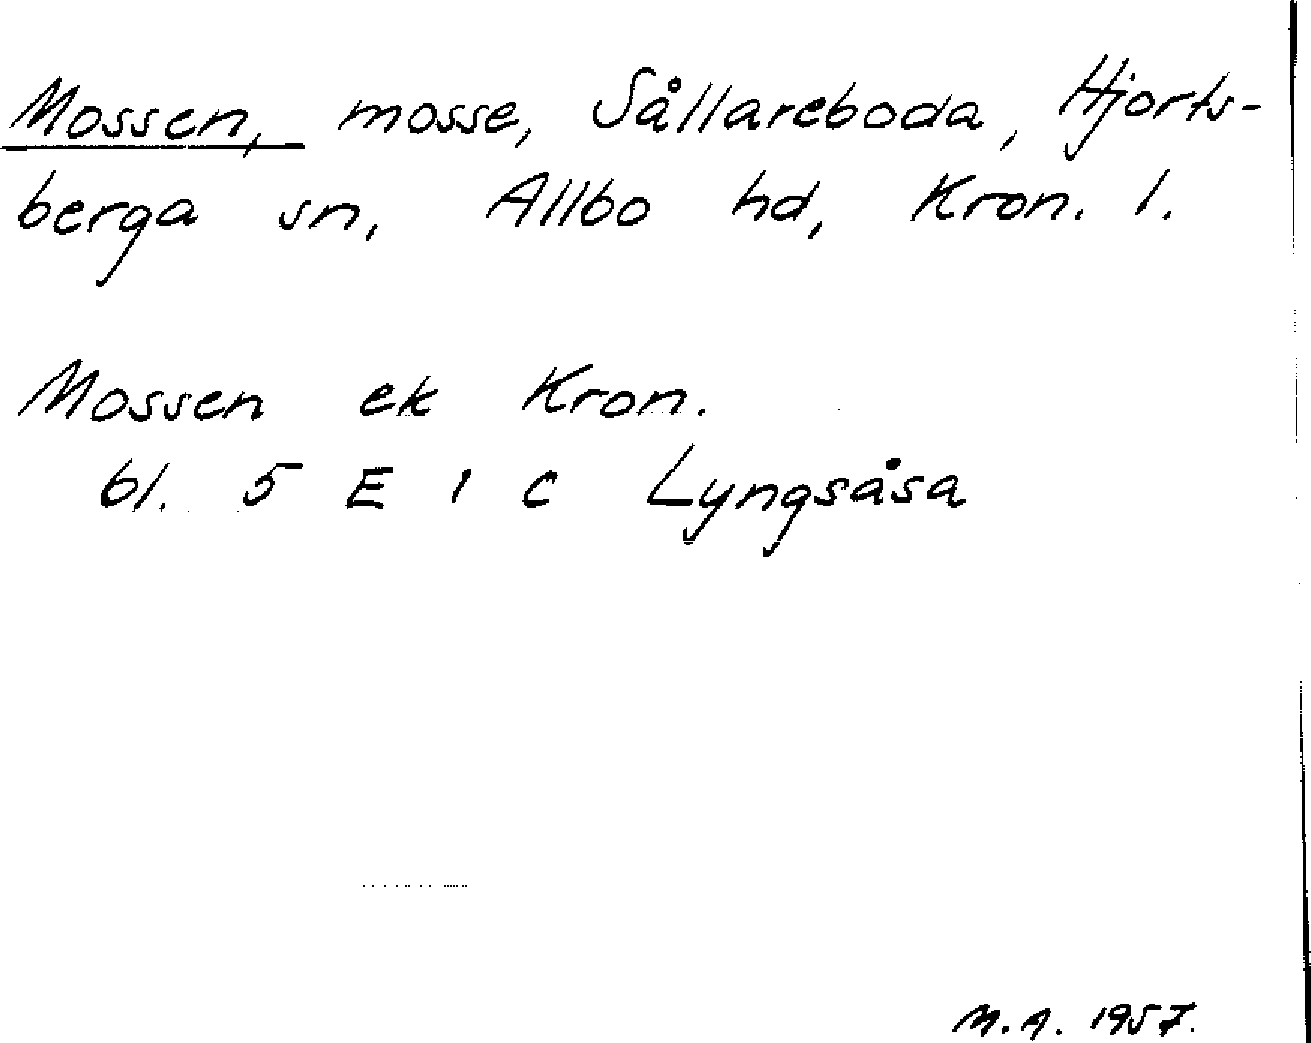 Mossen, mosse, Sållareboda, Hjorts-
berga sn, Allbo hd, Kron. l.
Mossen ek Kron.
bl. 5 E 1 C Lyngsåsa
M.A. 1957.